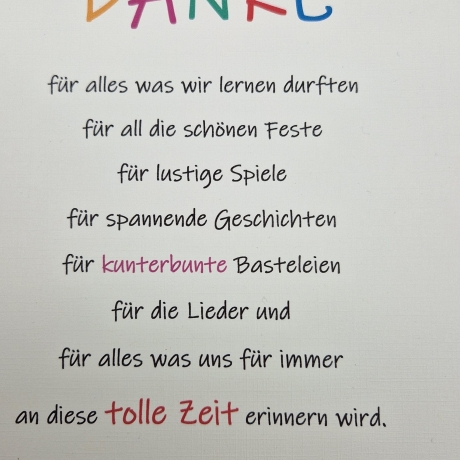 DANKE
für alles was wir lernen durften
für all die schönen Feste
für lustige Spiele
für spannende Geschichten
für kunterbunte Basteleien
für die Lieder und
für alles was uns für immer
an diese tolle Zeit erinnern wird.